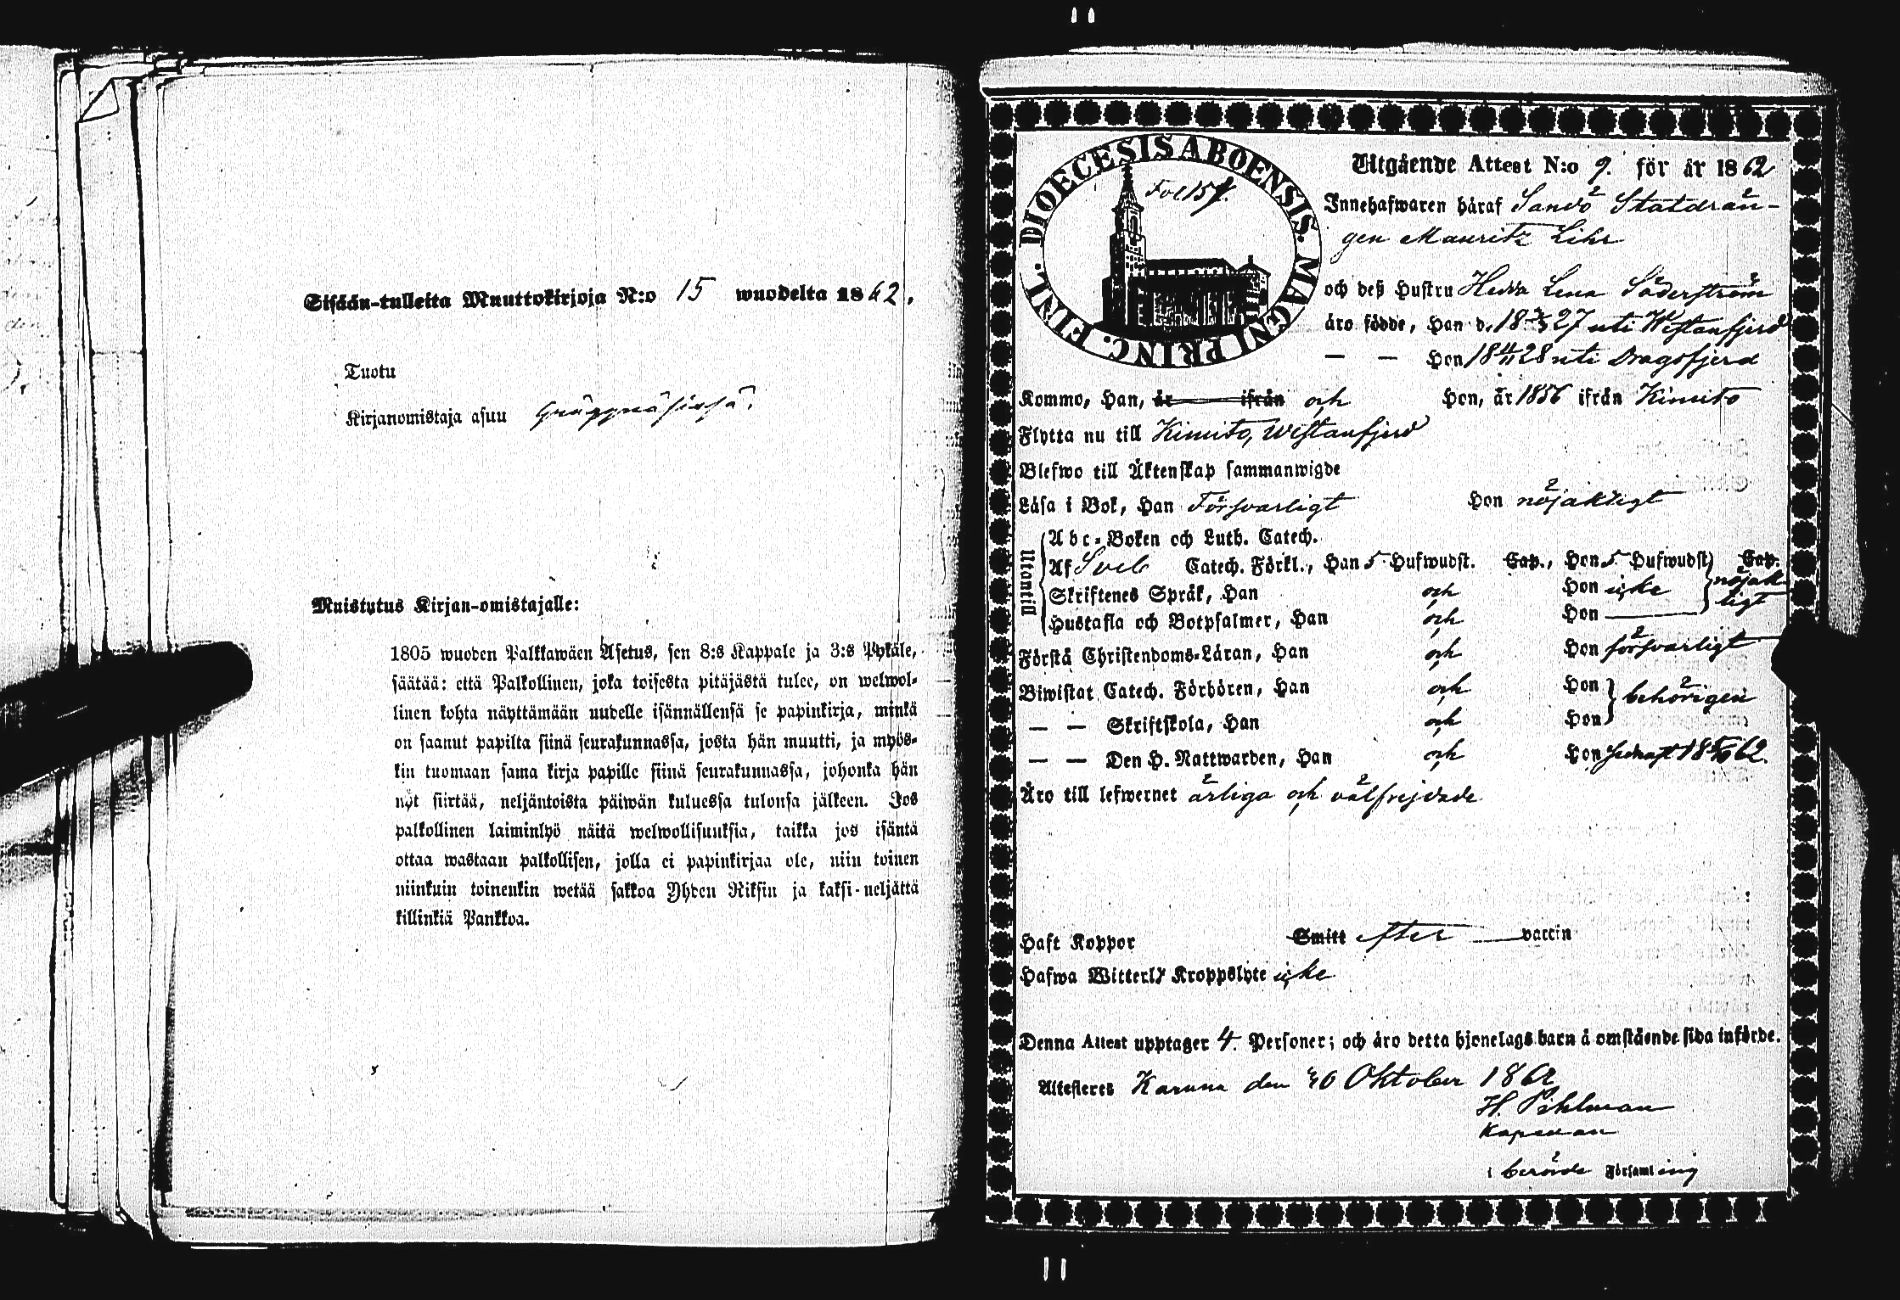 Sisään-tulleita Muuttokirjoja N:o 15 wuodelta 1862.
Tuotu
Kirjanomistaja asuu
Muistutus Kirjan-omistajalle:
1805 wuoden Palkkawäen Asetus, sen 8:s Kappale ja 3:s Pykäle,
säätää: että Palkollinen, joka toisesta pitäjästä tulee, on welwol-
linen kohta näyttämään uudelle isännällensä se papinkirja, minkä
on saanut papilta siinä seurakunnassa, josta hän muutti, ja myös-
kin tuomaan sama kirja papille siinä seurakunnassa, johonka hän
nyt siirtää, neljäntoista päiwän kuluessa tulonsa jälkeen. Jos
palkollinen laiminlyö näitä welwollisuuksia, taikka jos isäntä
ottaa wastaan palkollisen, jolla ei papinkirjaa ole, niin toinen
niinkuin toinenkin wetää sakkoa Yhden Riksin ja kaksi-neljättä
killinkiä Pankkoa.
DIOECESIS ABOENSIS. MAGNI PRINC. FINL.
Fol 159.
Utgående Attest N:o 9. för år 1862
Innehafwaren häraf Sandö Statdrän-
gen Mauritz Lihr
och deß Hustru Hedda Lena Söderström
äro födde, Han d. 18 27 uti Westanfjerd
— — Hon 18 28 uti Dragsfjerd
Komme, Han, år ifrån och Hon, år 1856 ifrån Kimito
Flytta nu till Kimito, Westanfjerd
Blefwo till Äktenskap sammanwigde
Läsa i Bok, Han Försvarligt Hon nöjaktigt
Utantill
Abc-Boken och Luth. Catech.
Af Sveb Catech. Förkl., Han 5 Hufwudst. Cap., Hon 5 Hufwudst. Cap.
Skriftenes Språk, Han och Hon icke nöjak-
Hustafla och Botpsalmer, Han och Hon — ligt
Förstå Christendoms-Läran, Han och Hon försvarligt
Biwistat Catech. Förhören, Han och Hon behörigen
— — Skriftskola, Han och Hon
— — Den H. Nattwarden, Han och Hon senast 18 62.
Äro till lefwernet ärliga och välfrejdade
Haft Koppor Smitt efter — vaccin
Hafwa Witterl. Kroppslyte icke
Denna Attest upptager 4. Personer; och äro detta hjonelags barn å omstående sida införde.
Attesteres Karuna den Oktober 1862
H. Pihlman
Kapellan
i berörde Församling